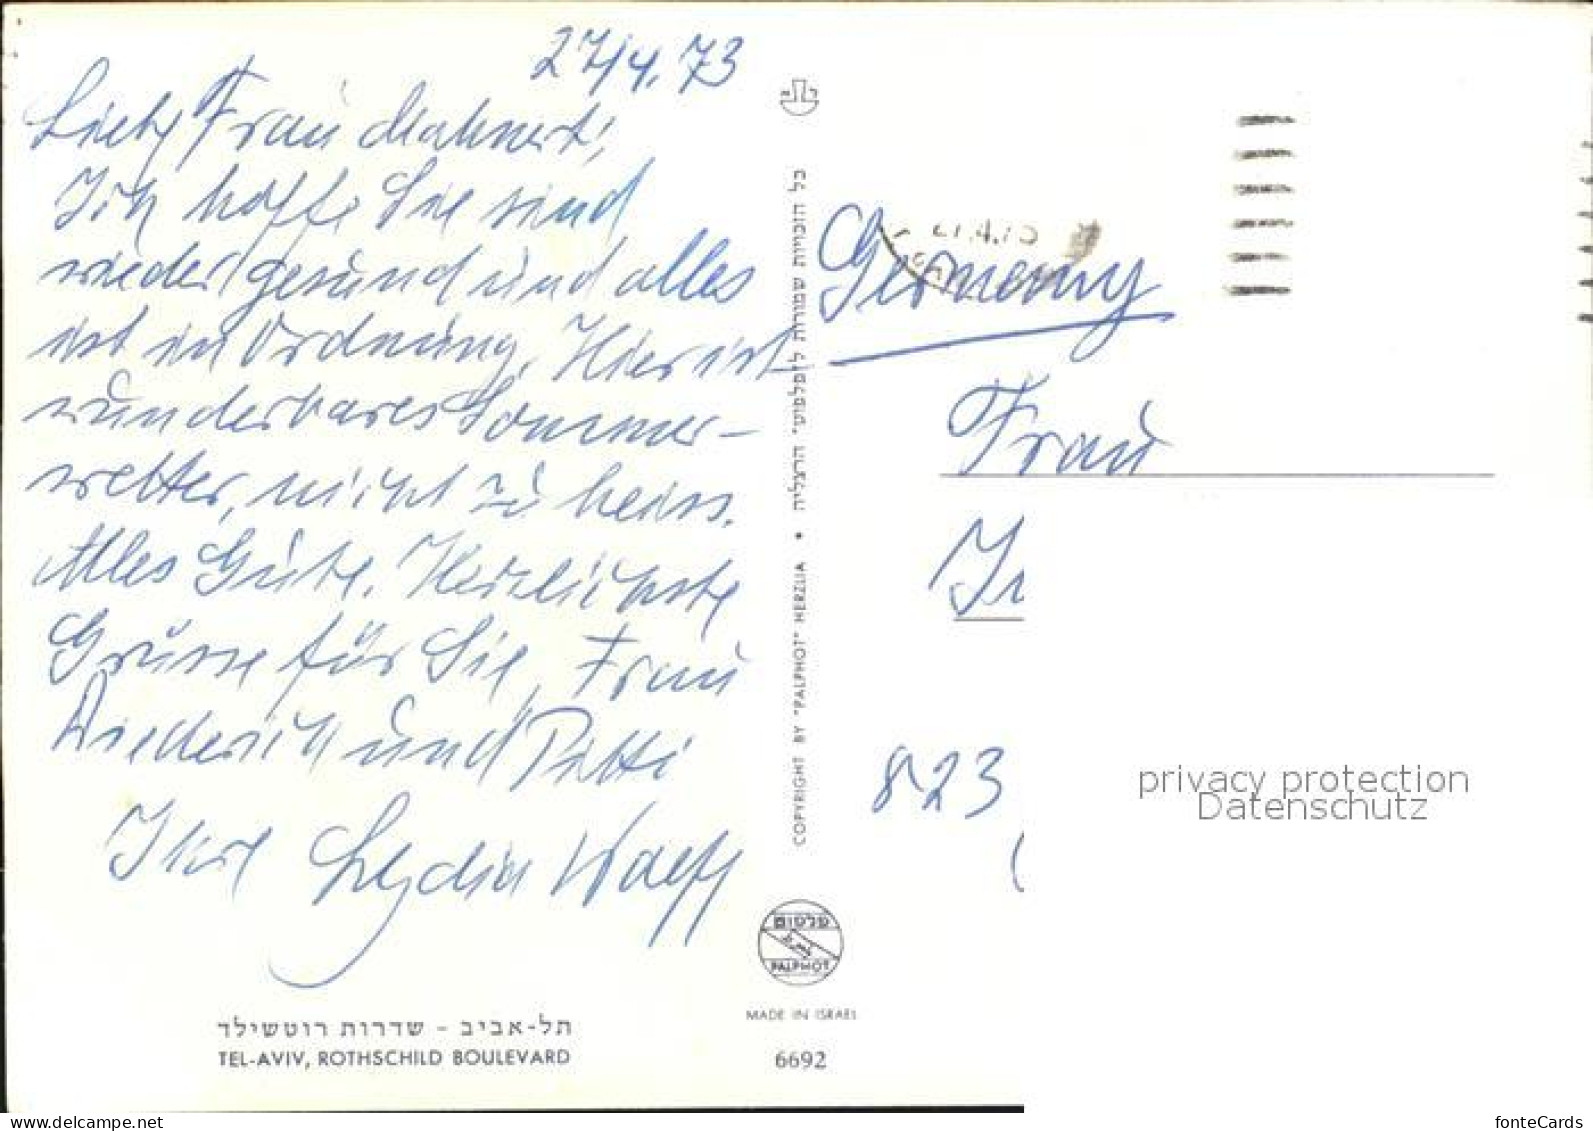 27/4.73
Liebe Frau Mahnert,
Ich hoffe Sie sind
wieder gesund und alles
ist in Ordnung. Hier ist
wunderbares Sommer-
wetter, nicht zu heiss.
Alles Gute. Herzlichste
Grüsse für Sie, Frau
Diederich und Patti
Ihre Lydia
תל-אביב - שדרות רוטשילד
TEL-AVIV, ROTHSCHILD BOULEVARD
כל הזכויות שמורות ל"פלפוט" הרצליה
COPYRIGHT BY "PALPHOT" HERZLIA
פלפוט
PALPHOT
MADE IN ISRAEL
6692
Germany
Frau
823
privacy protection
Datenschutz
delcampe.net
fonteCards